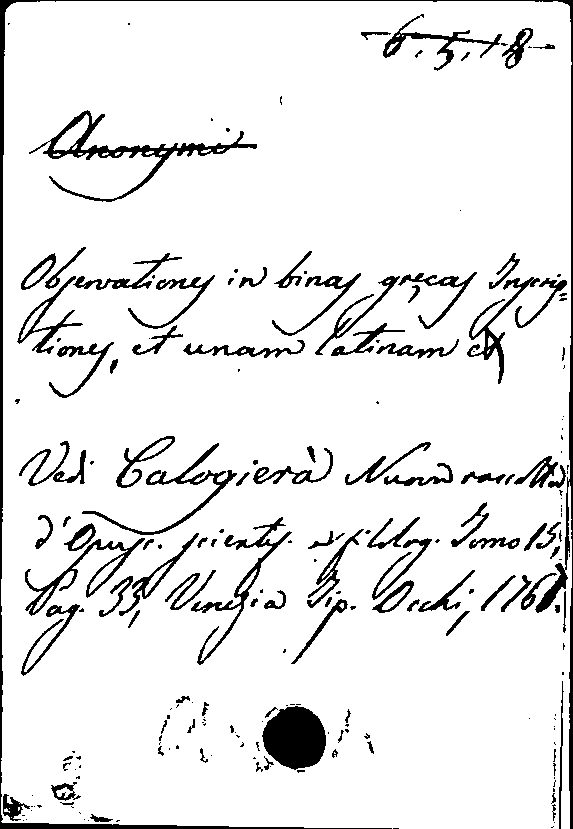 6.5.18
Anonymi
Observationes in binas gręcas Inscrip=
tiones, et unam latinam
Vedi Calogierà Nuova raccolta
d'Opusc. scientif. e filolog. Tomo 15,
Pag. 33, Venezia Tip. Occhi,